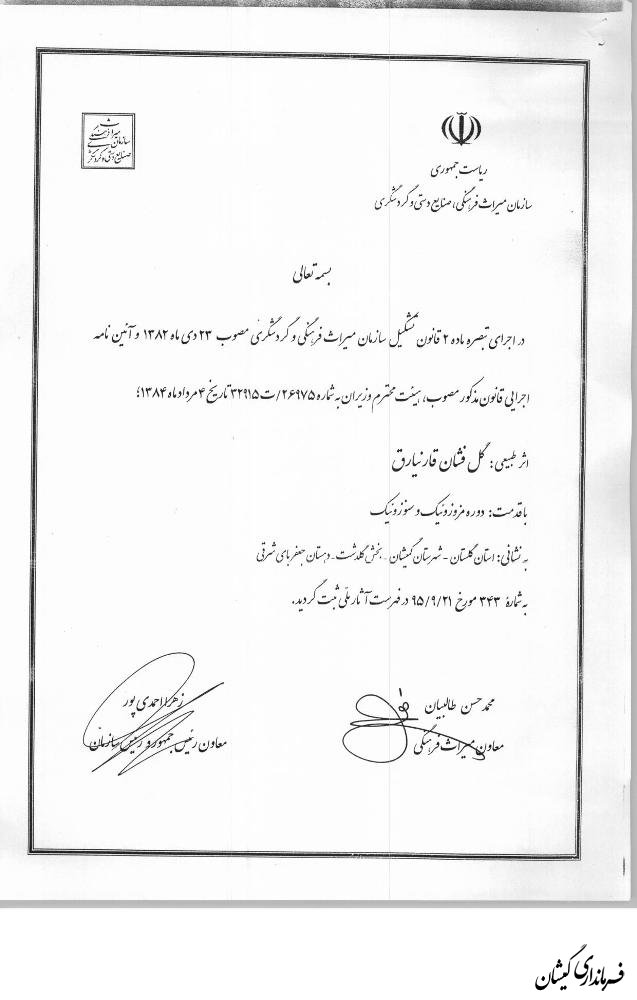 ریاست جمهوری
سازمان میراث فرهنگی، صنایع دستی و گردشگری
سازمان میراث فرهنگی
صنایع دستی و گردشگری
بسمه تعالی
در اجرای تبصره ماده ۲ قانون تشکیل سازمان میراث فرهنگی و گردشگری مصوب ۲۳ دی ماه ۱۳۸۲ و آئین نامه
اجرایی قانون مذکور مصوب، هیئت محترم وزیران به شماره ۲۶۹۷۵/ت۳۲۹۱۵ تاریخ ۴ مرداد ماه ۱۳۸۴؛
اثر طبیعی: گل فشان قارنیارق
با قدمت: دوره مزوزوئیک و سنوزوئیک
به نشانی: استان گلستان - شهرستان گمیشان - بخش گلدشت - دهستان جعفربای شرقی
به شماره ۳۴۳ مورخ ۹۵/۹/۲۱ در فهرست آثار ملّی ثبت گردید.
محمد حسن طالبیان
معاون میراث فرهنگی
زهرا احمدی پور
معاون رئیس جمهور و رئیس سازمان
فرمانداری گمیشان